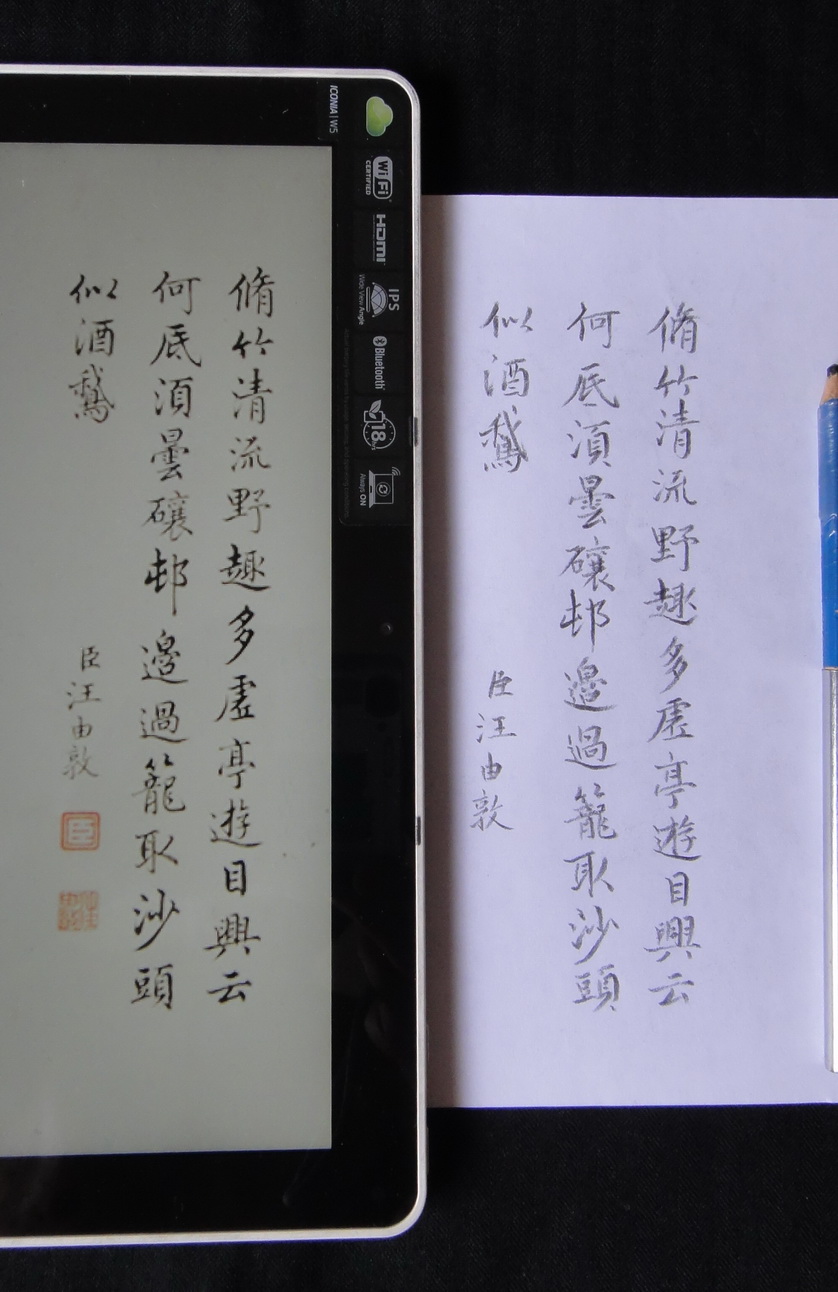 脩竹清流野趣多虛亭遊目興云
何底須曇邨邊過籠取沙頭
似酒鵝
臣汪由敦
臣
ICONIA | W5
Wi Fi
CERTIFIED
HDMI
IPS
Wide View Angle
Bluetooth
18
Always ON
脩竹清流野趣多虛亭遊目興云
何底須曇邨邊過籠取沙頭
似酒鵝
臣汪由敦